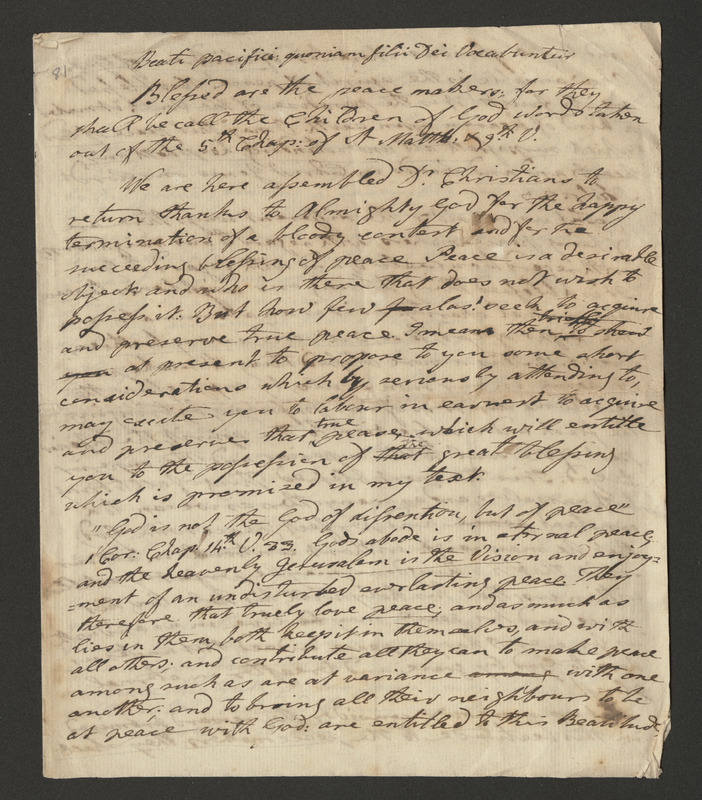 81
Beati pacifici, quoniam filii Dei Vocabuntur
Blessed are the peace makers; for they
shall be call the Children of God words taken
out of the 5.th Chap: of St Matth. & 9th V.
We are here assembled Dr. Christians to
return thanks to Almighty God for the happy
termination of a bloody contest and for the
succeeding blessing of peace Peace is a desirable
object and who is there that does not wish to
possess it. But how few alas! seek to acquire
and preserve true peace. I mean then briefly
at present to propose to you some short
considerations which by seriously attending to,
may excite you to labour in earnest to acquire
and preserve that true peace, which will entitle
you to the possession of the great blessing
which is promised in my text.
"God is not the God of dissention, but of peace"
1 Cor: Chap. 14th. V. 33. Gods abode is in eternal peace:
and the heavenly Jerusalem is the Vision and enjoy=
=ment of an undisturbed everlasting peace. They
therefore that truely love peace; and as much as
lies in them, both keep it in themselves, and with
all others: and contribute all they can to make peace
among such as are at variance among with one
another; and to bring all their neighbours to be
at peace with God: are entitled to this Beatitude